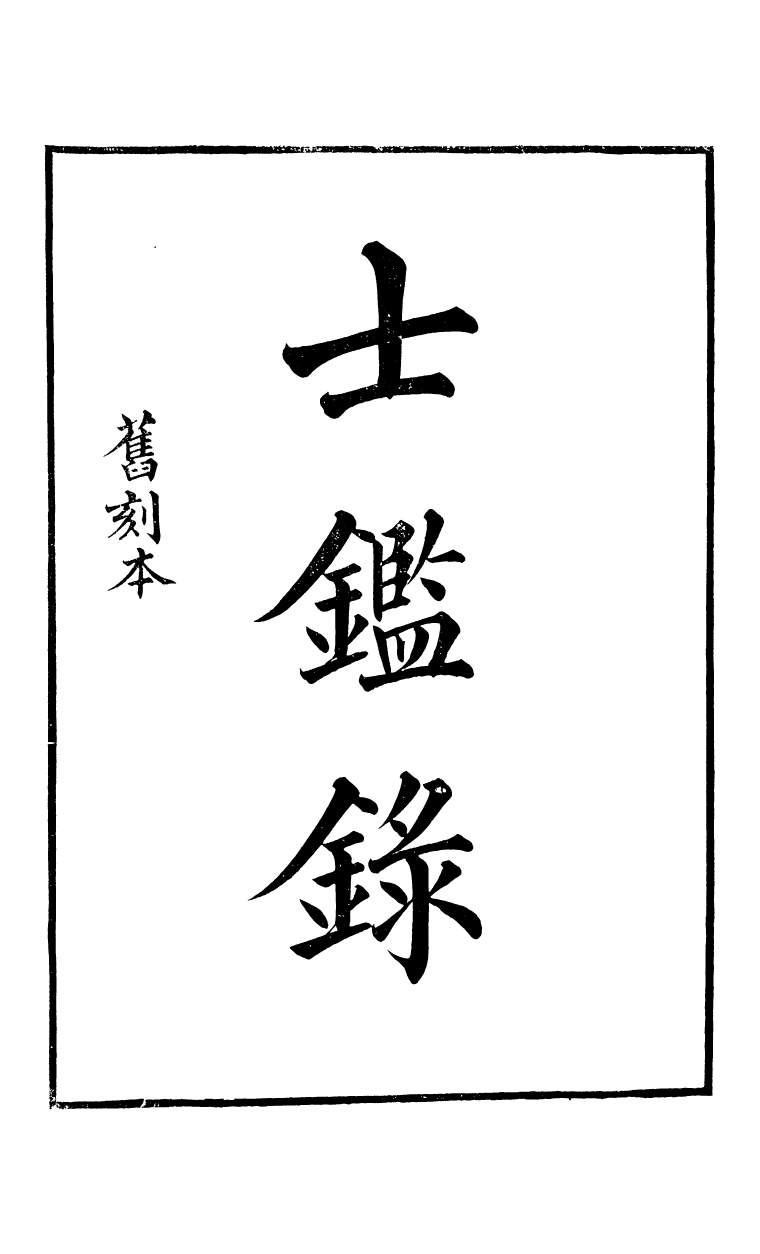 士鑑錄
舊刻本